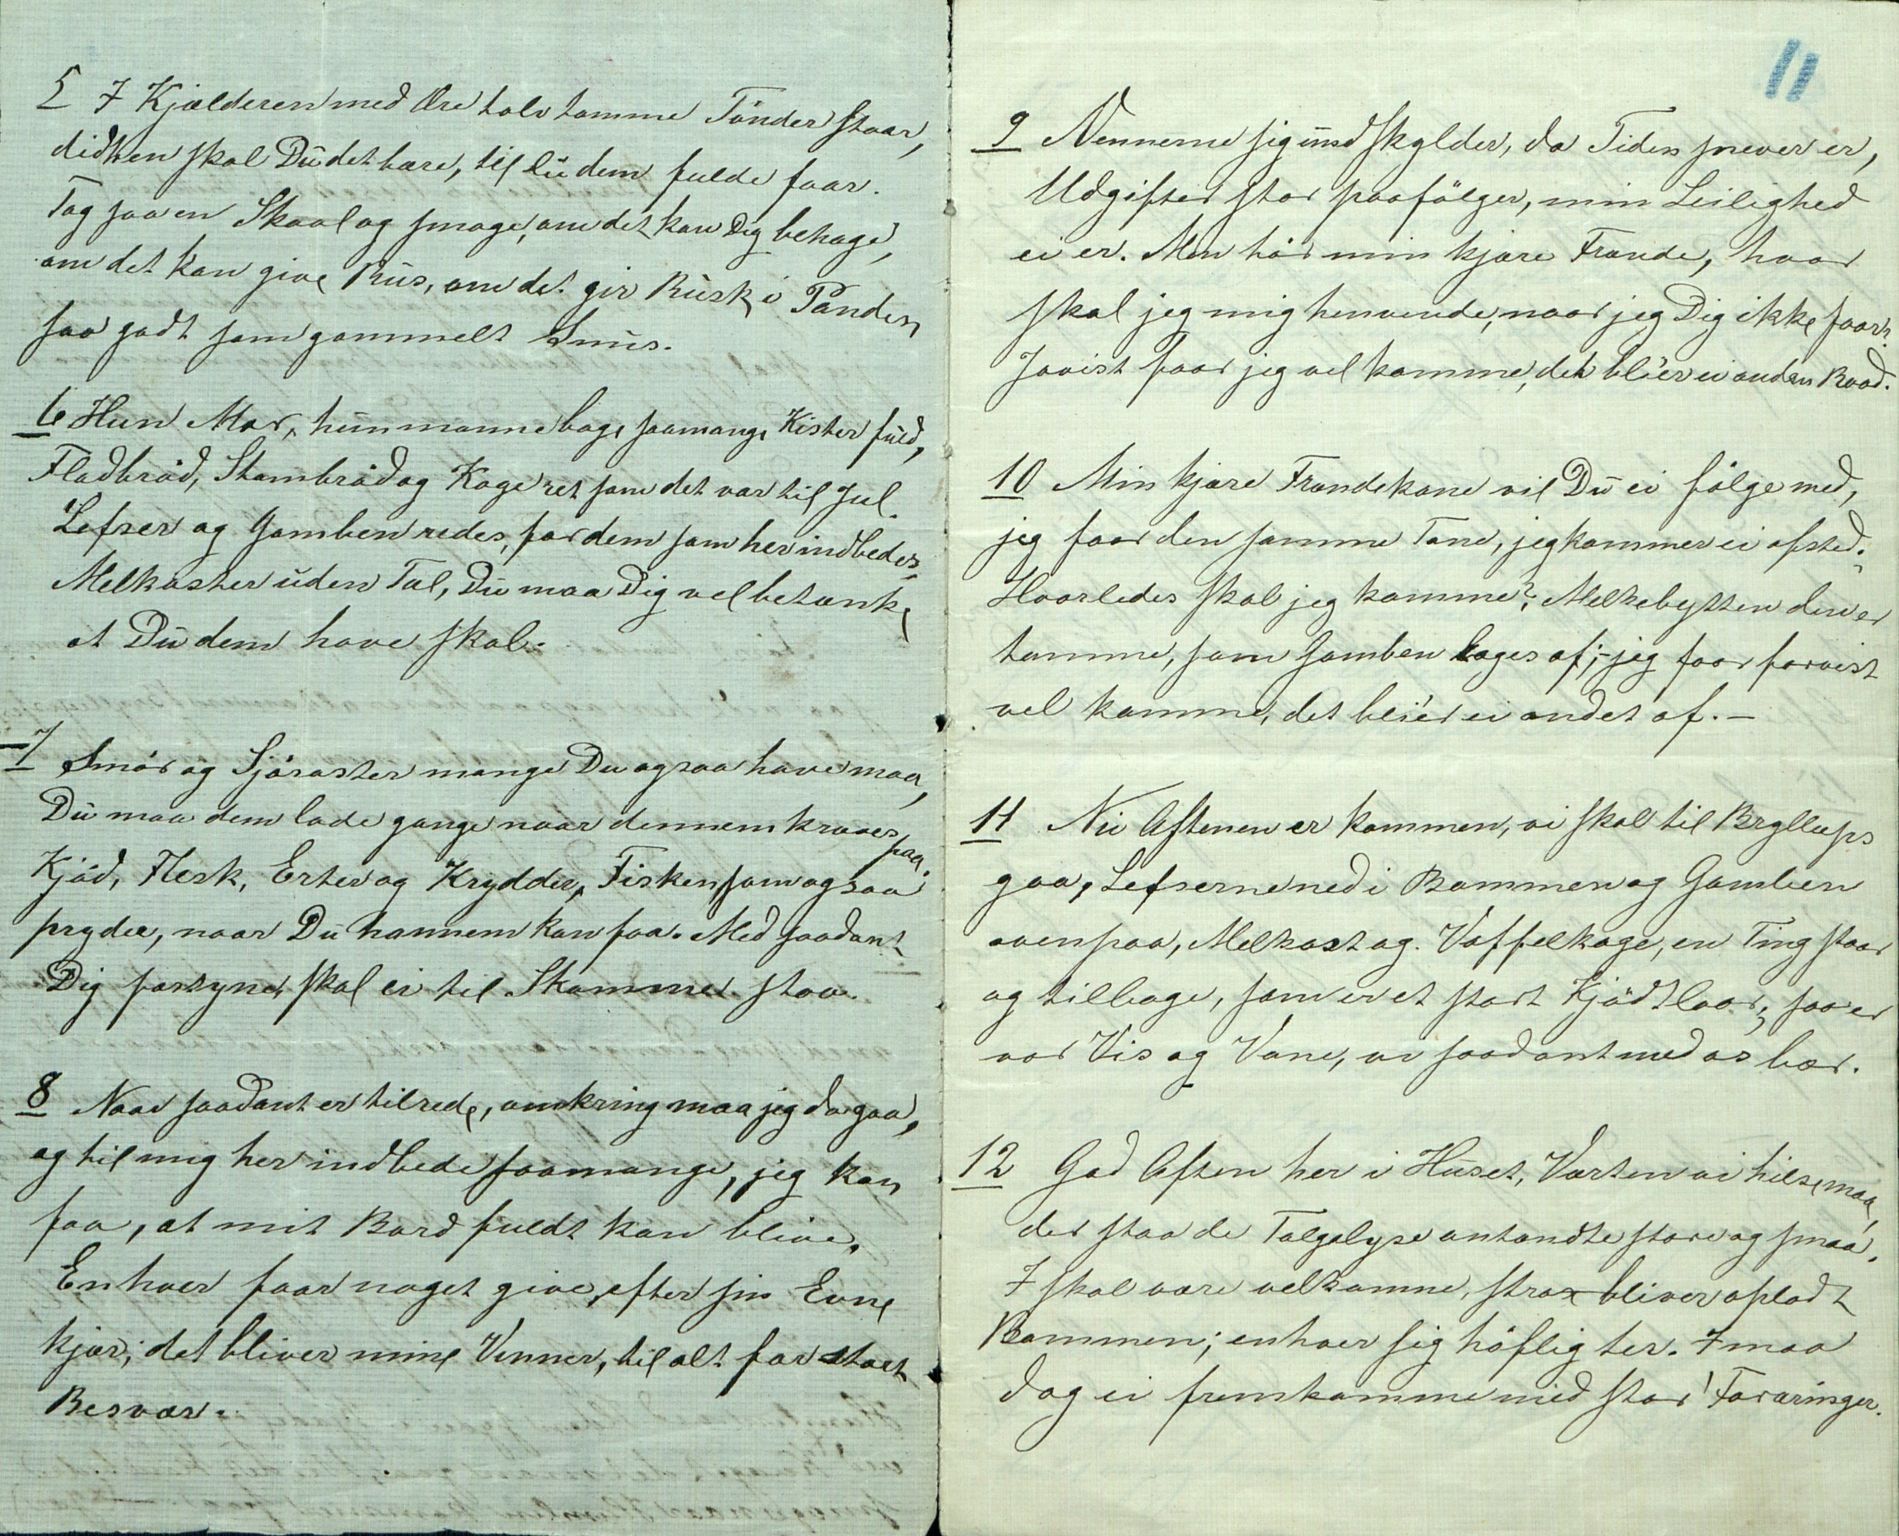 5 I Kjælderen med Øre tolv tomme Tönder staar,
didhen skal Du det bære, til Du dem fulde faar.
Tag saa en Skaal og smage, om det kan Dig behage,
om det kan give Rus, om det gir Rusk i Panden
saa godt som gammelt Snus.
6 Hun Mor, hun monne bage saamange Kister fuld,
Fladbröd, Stombröd og Kage ret som det var til Jul.
Lefser og Gomben redes, for dem som her indbedes,
Melkoster uden Tal, Du maa Dig vel betænke
at Du dem have skal.
7 Smör og Sjöroster mange Du ogsaa have maa,
Du maa dem lade gange naar dennem kræves
paa.
Kjöd, Flesk, Erter og Krydder, Fisken som ogsaa
pryder, naar Du hannem kan faa. Med saadant
Dig forsyne, skal ei til Skamme staa.
8 Naar saadant er tilrede, omkring maa jeg da gaa,
og til mig her indbede saamange, jeg kan
faa, at mit Bord fuldt kan blive.
Enhver faar noget give, efter sin Evne
kjær; det bliver mine Venner, til alt for stort
Besvær.
11
9 Vennerne sig undskylder, da Tiden snever er,
Udgifter stor paafölger, min Leilighed
ei er. Men hör min kjære Frænde, hvor
skal jeg mig henvende, naar jeg Dig ikke faar?
Javist faar jeg vel komme, det bli'er ei anden Raad.
10 Min kjære Frændekone vil Du ei fölge med,
jeg faar den samme Tone, jeg kommer ei afsted.
Hvorledes skal jeg komme? Melkebytten den er
tomme, som Gomben lages af; jeg faar forvist
vel komme, det bli'er ei andet af. —
11 Nu Aftenen er kommen, vi skal til Bryllups
gaa, Lefserne ned i Bommen og Gomben
ovenpaa, Melkost og Vaffelkage, en Ting staar
og tilbage, som er et stort Kjödtlaar; saa er
vor Vis og Vane, vi saadant med os bær.
12 God Aften her i Huset, Værten vi hilse maa,
der staa de Talgelyse antændte store og smaa.
I skal være velkomne, strax bliver opladt
Bommen; enhver sig höflig ter. I maa
dog ei fremkomme med stor' Foræringer.